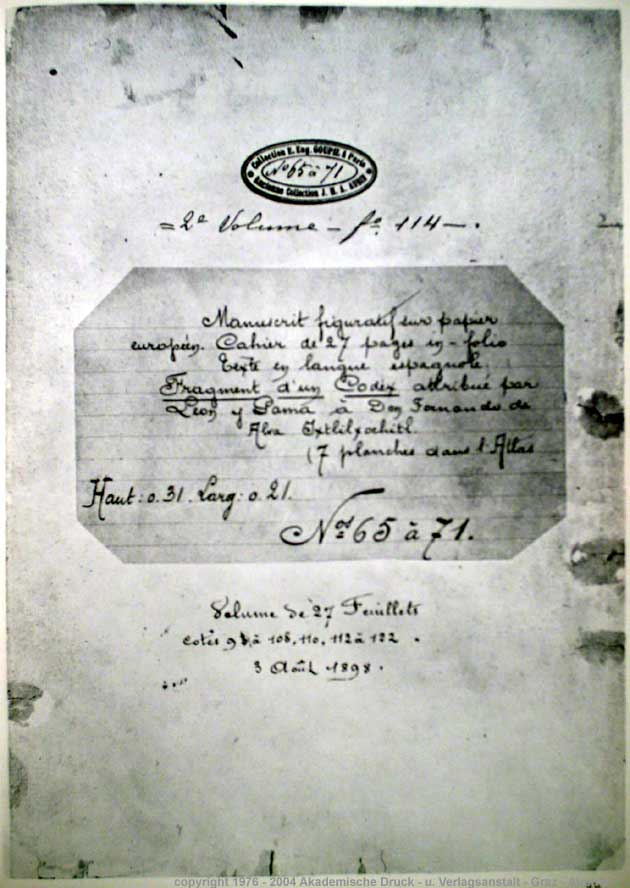 Collection E. Eug. GOUPIL à Paris
Nos 65 à 71
Ancienne Collection J. M. A. AUBIN
= 2e Volume - fo. 114 - .
Manuscrit figuratif sur papier
européen. Cahier de 27 pages in-folio
Texte en langue espagnole.
Fragment d'un Codex attribué par
Léon y Gama à Don Fernando de
Alva Ixtlilxochitl.
(7 planches dans l'Atlas
Haut: 0.31. Larg: 0.21.
Nos 65 à 71.
Volume de 27 Feuillets
cotés à 108, 110, 112 à 122 .
3 Août 1898.
copyright 1976 - 2004 Akademische Druck - u. Verlagsanstalt - Graz -